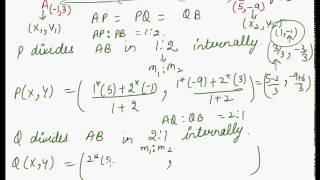 A(-1,3) AP = PQ = QB (5,-9)
(x₁,y₁) AP:PB = 1:2. (x₂,y₂) (1,-1)
P divides AB in 1:2 internally. (3/3, -3/3)
m₁:m₂
P(x,y) = ( (1*(5)+2*(-1))/(1+2) , (1*(-9)+2*(3))/(1+2) ) = ( (5-2)/3, (-9+6)/3 )
AQ:QB = 2:1
Q divides AB in 2:1 internally.
m₁:m₂
Q(x,y) = ( 2*(5 , )